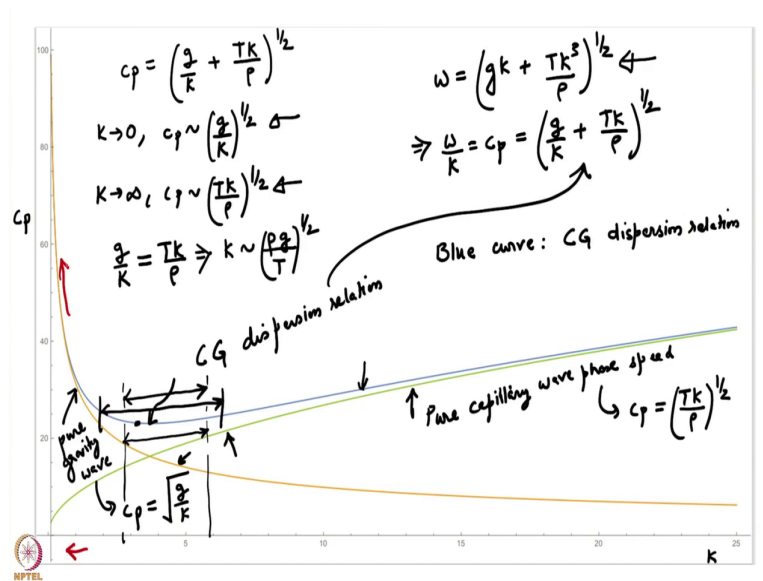 cp = (g/K + TK/ρ)^1/2
K→0, cp ~ (g/K)^1/2 ⇐
K→∞, cp ~ (TK/ρ)^1/2 ⇐
g/K = TK/ρ ⇒ K ~ (ρg/T)^1/2
ω = (gK + TK³/ρ)^1/2 ⇐
⇒ ω/K = cp = (g/K + TK/ρ)^1/2
Blue curve: CG dispersion relation
CG dispersion relation
Pure capillary wave phase speed
cp = (TK/ρ)^1/2
pure
gravity
wave
cp = √g/K
Cp
100
80
60
40
20
5
10
15
20
25
K
NPTEL